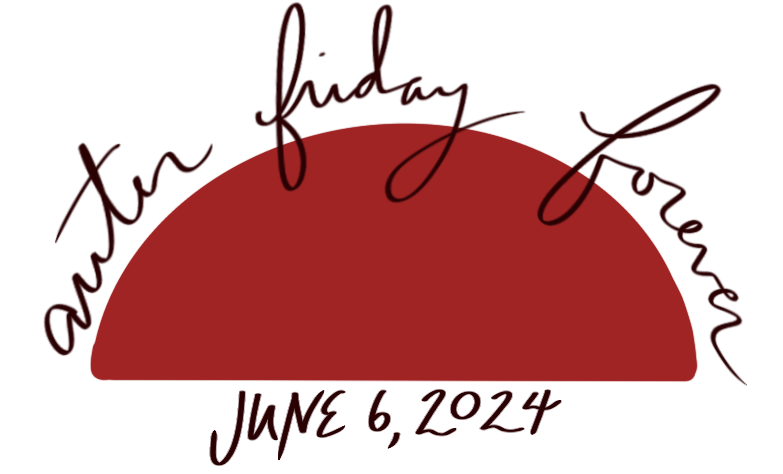 auter friday forever
JUNE 6, 2024